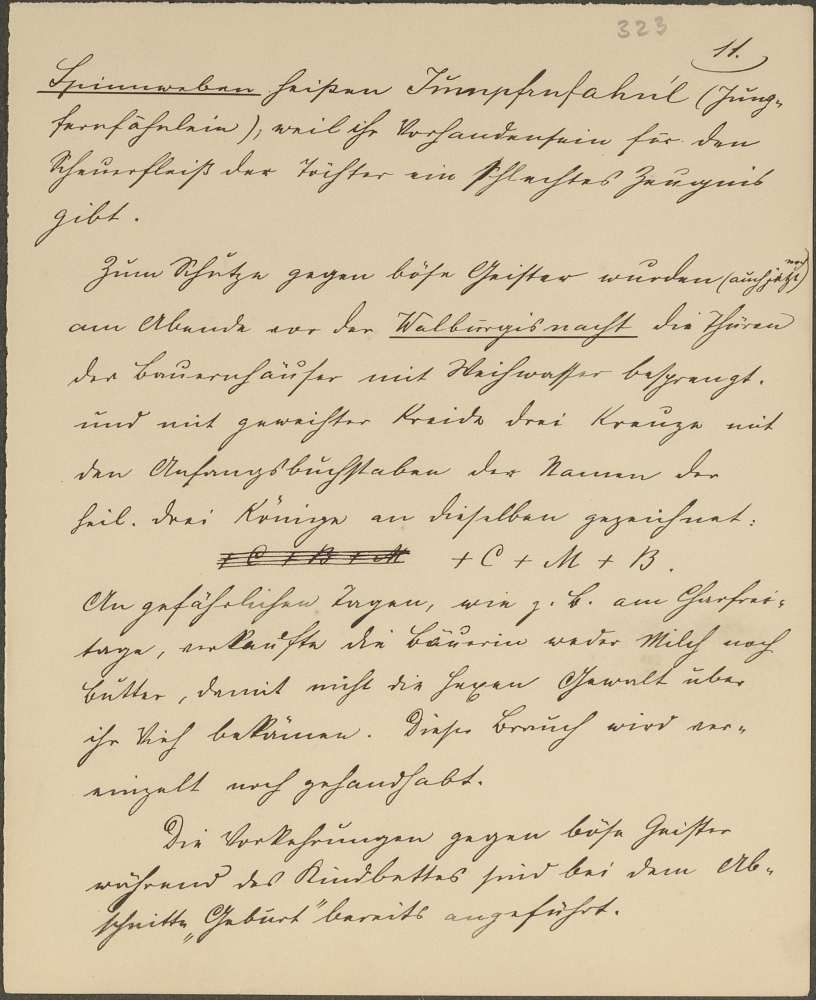 323
11.
Spinnweben heißen Jumpfenfahnl (Jung-
fernfähnlein), weil ihr Vorhandensein für den
Scheuerfleiß der Töchter ein schlechtes Zeugnis
gibt.
Zum Schutze gegen böse Geister wurden (auch jetzt noch)
am Abende vor der Walburgisnacht die Thüren
der Bauernhäuser mit Weihwasser besprengt.
und mit geweihter Kreide drei Kreuze mit
den Anfangsbuchstaben der Namen der
heil. drei Könige an dieselben gezeichnet:
+ C + B + M + C + M + B.
An gefährlichen Tagen, wie z. B. am Charfrei-
tage, verkaufte die Bäuerin weder Milch noch
Butter, damit nicht die Hexen Gewalt über
ihr Vieh bekämen. Dieser Brauch wird ver-
einzelt noch gehandhabt.
Die Vorkehrungen gegen böse Geister
während des Kindbettes sind bei dem Ab-
schnitte „Geburt" bereits angeführt.